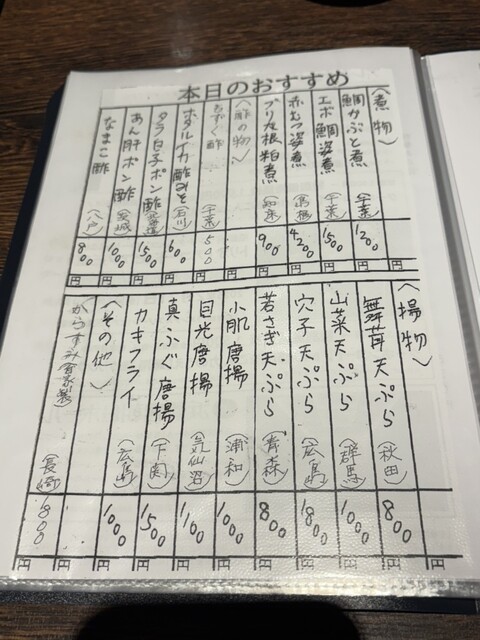 本日のおすすめ
〈煮物〉
鯛かぶと煮 (千葉) 1200円
エボ鯛姿煮 (千葉) 1500円
赤むつ姿煮 (島根) 4200円
ブリ大根粕煮 900円
〈酢の物〉 円
もずく酢 (千葉) 500円
ホタルイカ酢みそ (石川) 600円
タラ白子ポン酢 (北海道) 1500円
あん肝ポン酢 (宮城) 1000円
なまこ酢 (八戸) 800円
〈揚物〉 円
舞茸天ぷら (秋田) 800円
山菜天ぷら (群馬) 1000円
穴子天ぷら (広島) 1800円
若さぎ天ぷら (青森) 800円
小肌唐揚 (浦和) 1000円
目光唐揚 (気仙沼) 1100円
真ふぐ唐揚 (下関) 1500円
カキフライ (広島) 1000円
〈その他〉 円
からすみ自家製 (長崎) 1800円